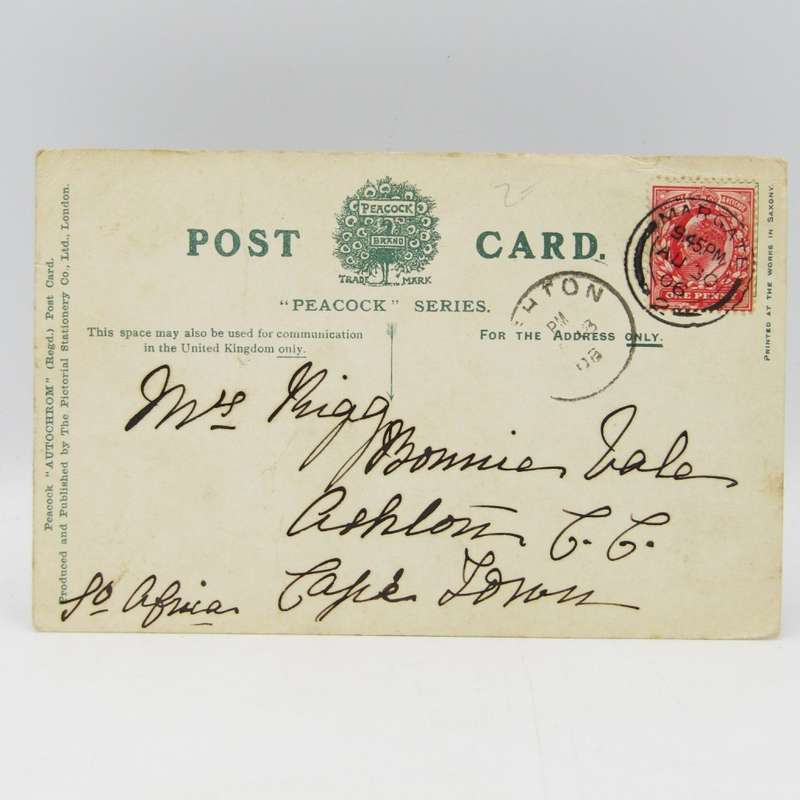 POST CARD.
PEACOCK
BRAND
TRADE MARK
"PEACOCK" SERIES.
This space may also be used for communication
in the United Kingdom only.
FOR THE ADDRESS ONLY.
Peacock "AUTOCHROM" (Regd.) Post Card.
Produced and Published by The Pictorial Stationery Co., Ltd., London.
PRINTED AT THE WORKS IN SAXONY.
MARGATE
9.45 PM
AU 30
06
ONE PENNY
HTON
PM
Mrs Rigg
Bonnie Vale
Ashton C. C.
Cape Town
So Africa